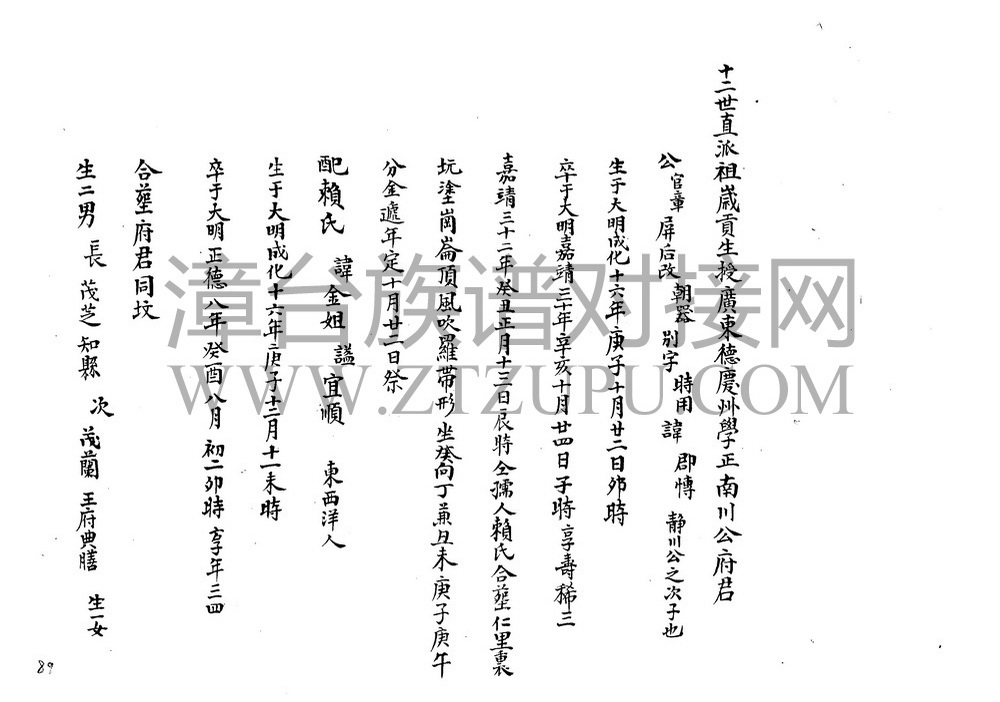 十二世直派祖歲貢生授廣東德慶州學正南川公府君
公官章屏后改朝器別字時用諱郡愽靜川公之次子也
生于大明成化十六年庚子十月廿二日卯時
卒于大明嘉靖三十年辛亥十月廿四日子時享壽稀三
嘉靖三十二年癸丑正月十三日辰時仝孺人賴氏合塟仁里裏
坑塗崗崙頂風吹羅帶形坐癸向丁兼丑未庚子庚午
分金遞年定十月廿二日祭
配賴氏 諱金姐 謚宜順 東西洋人
生于大明成化十六年庚子十二月十一未時
卒于大明正德八年癸酉八月初二卯時享年三四
合塟府君同坟
生二男 長茂芝知縣 次茂蘭王府典膳 生一女
89
漳台族谱对接网
WWW.ZTZUPU.COM